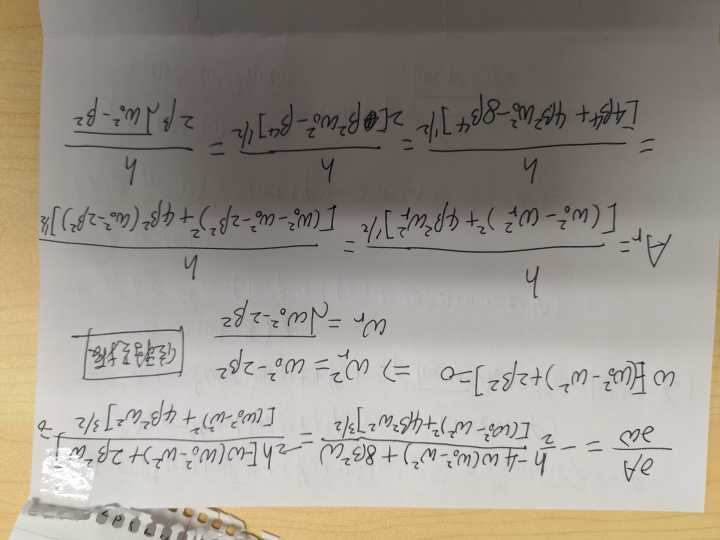 ∂A/∂ω = -h/2 (-4ω(ω₀²-ω²)+8β²ω)/[(ω₀²-ω²)²+4β²ω²]^3/2 = -2h[-ω(ω₀²-ω²)+2β²ω]/[(ω₀²-ω²)²+4β²ω²]^3/2 = 0
ω[-(ω₀²-ω²)+2β²]=0 ⇒ ωᵣ² = ω₀²-2β²
ωᵣ = √(ω₀²-2β²)
Aᵣ = h/[(ω₀²-ωᵣ²)²+4β²ωᵣ²]^1/2 = h/[(ω₀²-ω₀²-2β²)²+4β²(ω₀²-2β²)]^1/2
= h/[4β⁴+4β²ω₀²-8β⁴]^1/2 = h/2[β²ω₀²-β⁴]^1/2 = h/2β√(ω₀²-β²)